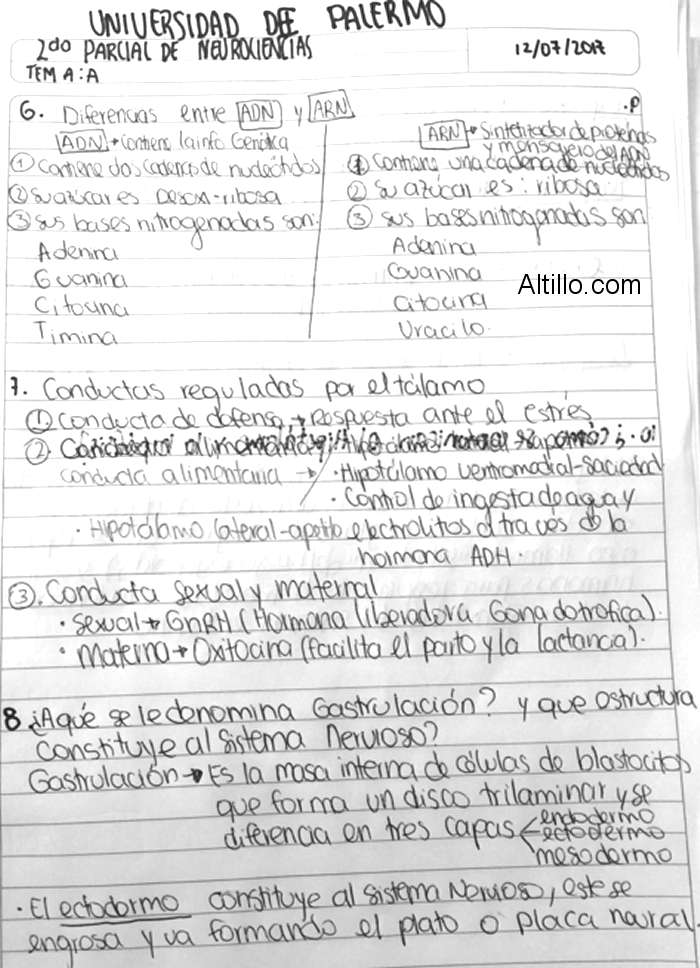 UNIVERSIDAD DE PALERMO
2do PARCIAL DE NEUROCIENCIAS
12/07/2017
TEMA: A
6. Diferencias entre ADN y ARN
.P
ADN → Contiene la info Genética
① Contiene dos cadenas de nucleótidos
② Su azúcar es Desoxi-ribosa
③ Sus bases nitrogenadas son:
Adenina
Guanina
Citocina
Timina
ARN → Sintetizador de proteínas
y mensajero del ADN
① Contiene una cadena de nucleótidos
② Su azúcar es: ribosa
③ Sus bases nitrogenadas son
Adenina
Guanina
Citocina
Uracilo.
Altillo.com
7. Conductas reguladas por el tálamo
① Conducta de defensa → Respuesta ante el estrés
②
conducta alimentaria → · Hipotálamo ventromedial-Saciedad
· Control de ingesta de agua y
· Hipotálamo lateral-apetito electrolitos a través de la
hormona ADH.
③. Conducta sexual y maternal
· Sexual → GnRH (Hormona liberadora Gonadotrofica).
· Materno → Oxitocina (facilita el parto y la lactancia).
8 ¿A qué se le denomina Gastrulación? y que estructura
Constituye al Sistema Nervioso?
Gastrulación → Es la masa interna de células de blastocitos
que forma un disco trilaminar y se
diferencia en tres capas < endodermo
ectodermo
mesodermo
· El ectodermo constituye al Sistema Nervioso, este se
engrosa y va formando el plato o placa neural.